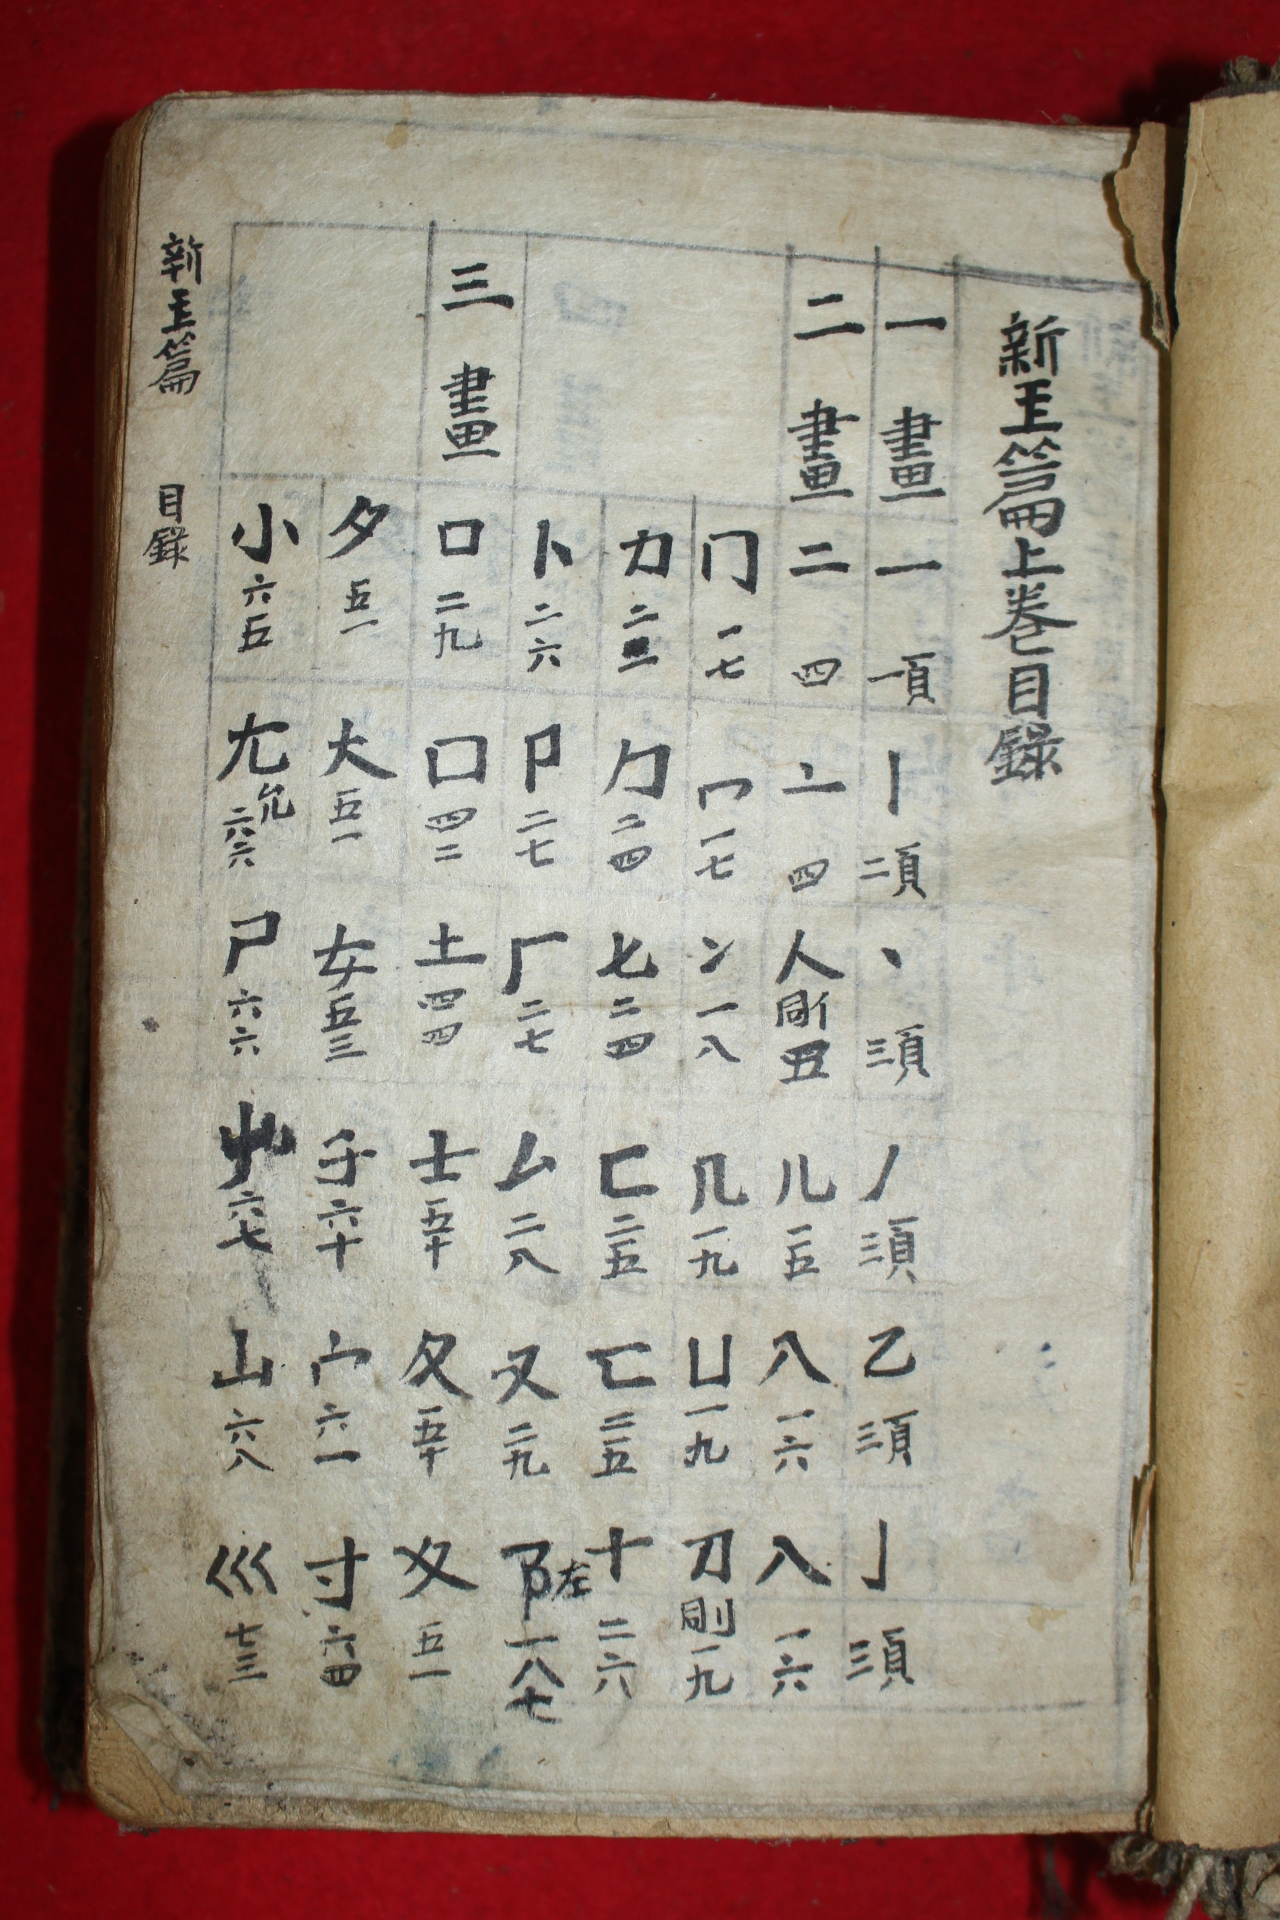 新玉篇上卷目錄
一畫 一 一頁 丨 二頁 丶 三頁 丿 三頁 乙 三頁 亅 三頁
二畫 二 四 亠 四 人 五 儿 一五 八 一六 入 一六
冂 一七 冖 一七 冫 一八 几 一九 凵 一九 刀 一九
力 二 勹 二四 匕 二四 匚 二五 匸 二五 十 二六
卜 二六 卩 二七 厂 二七 厶 二八 又 二九 阝左 一八七
三畫 口 二九 囗 四二 土 四四 士 五十 夂 五十 夊 五一
夕 五一 大 五一 女 五三 子 六十 宀 六一 寸 六四
小 六五 尢 允 六六 尸 六六 屮 六七 山 六八 巛 七三
新玉篇 目錄